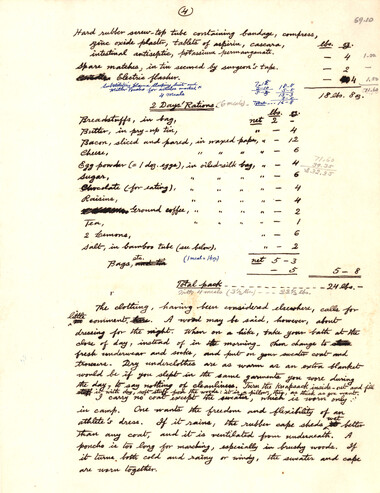 (4)
69.10
Hard rubber screw-top tube containing bandage, compress,
zinc oxide plaster, tablets of aspirin, cascara,
intestinal antiseptic, potassium permanganate. lbs. oz.
— 4
Spare matches, in tin secured by surgeon's tape. — 2
Electric flasher. 4
18 lbs. 8 oz.
2 Days' Rations
lbs. oz.
Breadstuffs, in bag, net 2 —
Butter, in pry-up tin, — 4
Bacon, sliced and pared, in waxed paper, — 12
Cheese, " " " — 6
Egg powder (= 1 doz. eggs), in oiled-silk bag, — 4
Sugar, " " " — 6
Chocolate (for eating), " " " — 4
Raisins, " " " — 4
Ground coffee, " " " — 2
Tea, " " " — 1
2 Lemons, — 6
Salt, in bamboo tube (see below), — 2
net 5 - 3
Bags, etc. (1 meal = 1 kg) — 5 5 - 8
Total pack 24 lbs. -
The clothing, having been considered elsewhere, calls for
little comment. A word may be said, however, about
dressing for the night. When on a hike, take your bath at the
close of day, instead of in the morning, then change to
fresh underwear and socks, and put on your sweater coat and
trousers. Dry underclothes are as warm as an extra blanket
would be if you slept in the same garments you wore during
the day, to say nothing of cleanliness. Turn the knapsack inside out and fill
it with dry, soft stuff from the woods: it is a pillow, then, as thick as you want.
I carry no coat except the sweater, which is worn only
in camp. One wants the freedom and flexibility of an
athlete's dress. If it rains, the rubber cape sheds wet better
than any coat, and it is ventilated from underneath. A
poncho is too long for marching, especially in brushy woods. If
it turns both cold and rainy or windy, the sweater and cape
are worn together.